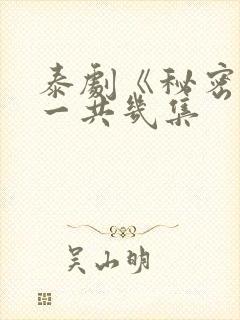 泰劇《秘密
一共幾集
吴山明